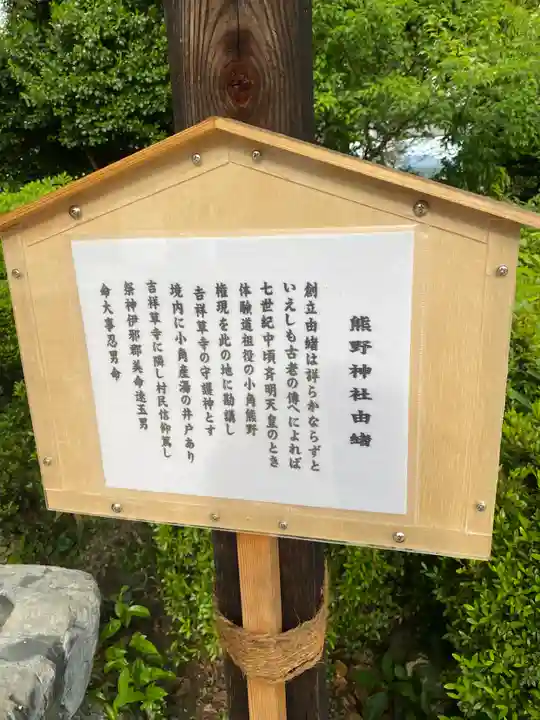 熊野神社由緒
創立由緒は詳らかならずと
いえしも古老の傳へによれば
七世紀中頃斉明天皇のとき
体験道祖役の小角熊野
権現を此の地に勘請し
吉祥草寺の守護神とす
境内に小角産湯の井戸あり
吉祥草寺に隣し村民信仰篤し
祭神伊邪那美命速玉男
命大事忍男命